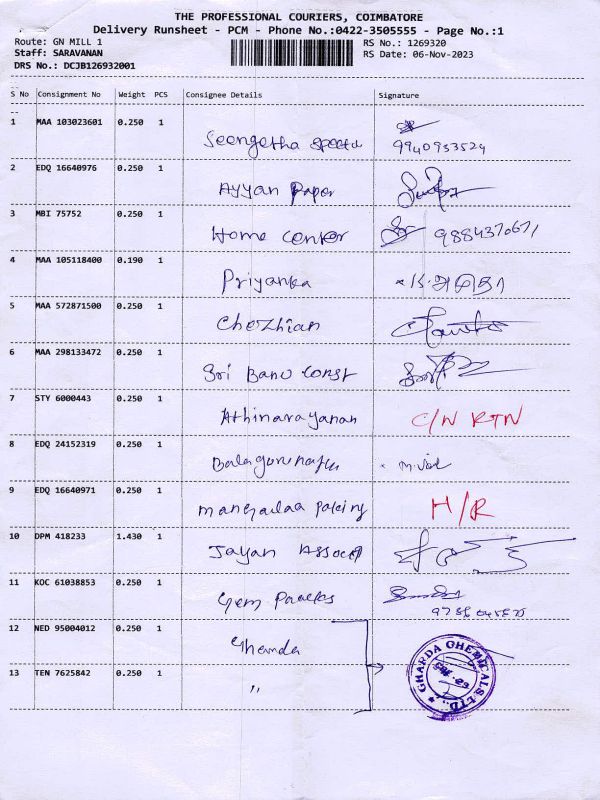 THE PROFESSIONAL COURIERS, COIMBATORE
Delivery Runsheet - PCM - Phone No.:0422-3505555 - Page No.:1
Route: GN MILL 1
RS No.: 1269320
Staff: SARAVANAN
RS Date: 06-Nov-2023
DRS No.: DCJB126932001
S No Consignment No Weight PCS Consignee Details Signature
1 MAA 103023601 0.250 1
9940953524
2 EDQ 16640976 0.250 1 Ayyan Paper
3 MBI 75752 0.250 1 Home center
4 MAA 105118400 0.190 1 Priyanka
5 MAA 572871500 0.250 1 Chezhian
6 MAA 298133472 0.250 1 Sri Banu Const
7 STY 6000443 0.250 1 Athinarayanan C/N RTN
8 EDQ 24152319 0.250 1
9 EDQ 16640971 0.250 1 H/R
10 DPM 418233 1.430 1 Jayan Assoct
11 KOC 61038853 0.250 1 Gem
12 NED 95004012 0.250 1 Gharda
GHARDA CHEMICALS LTD.
13 TEN 7625842 0.250 1 "